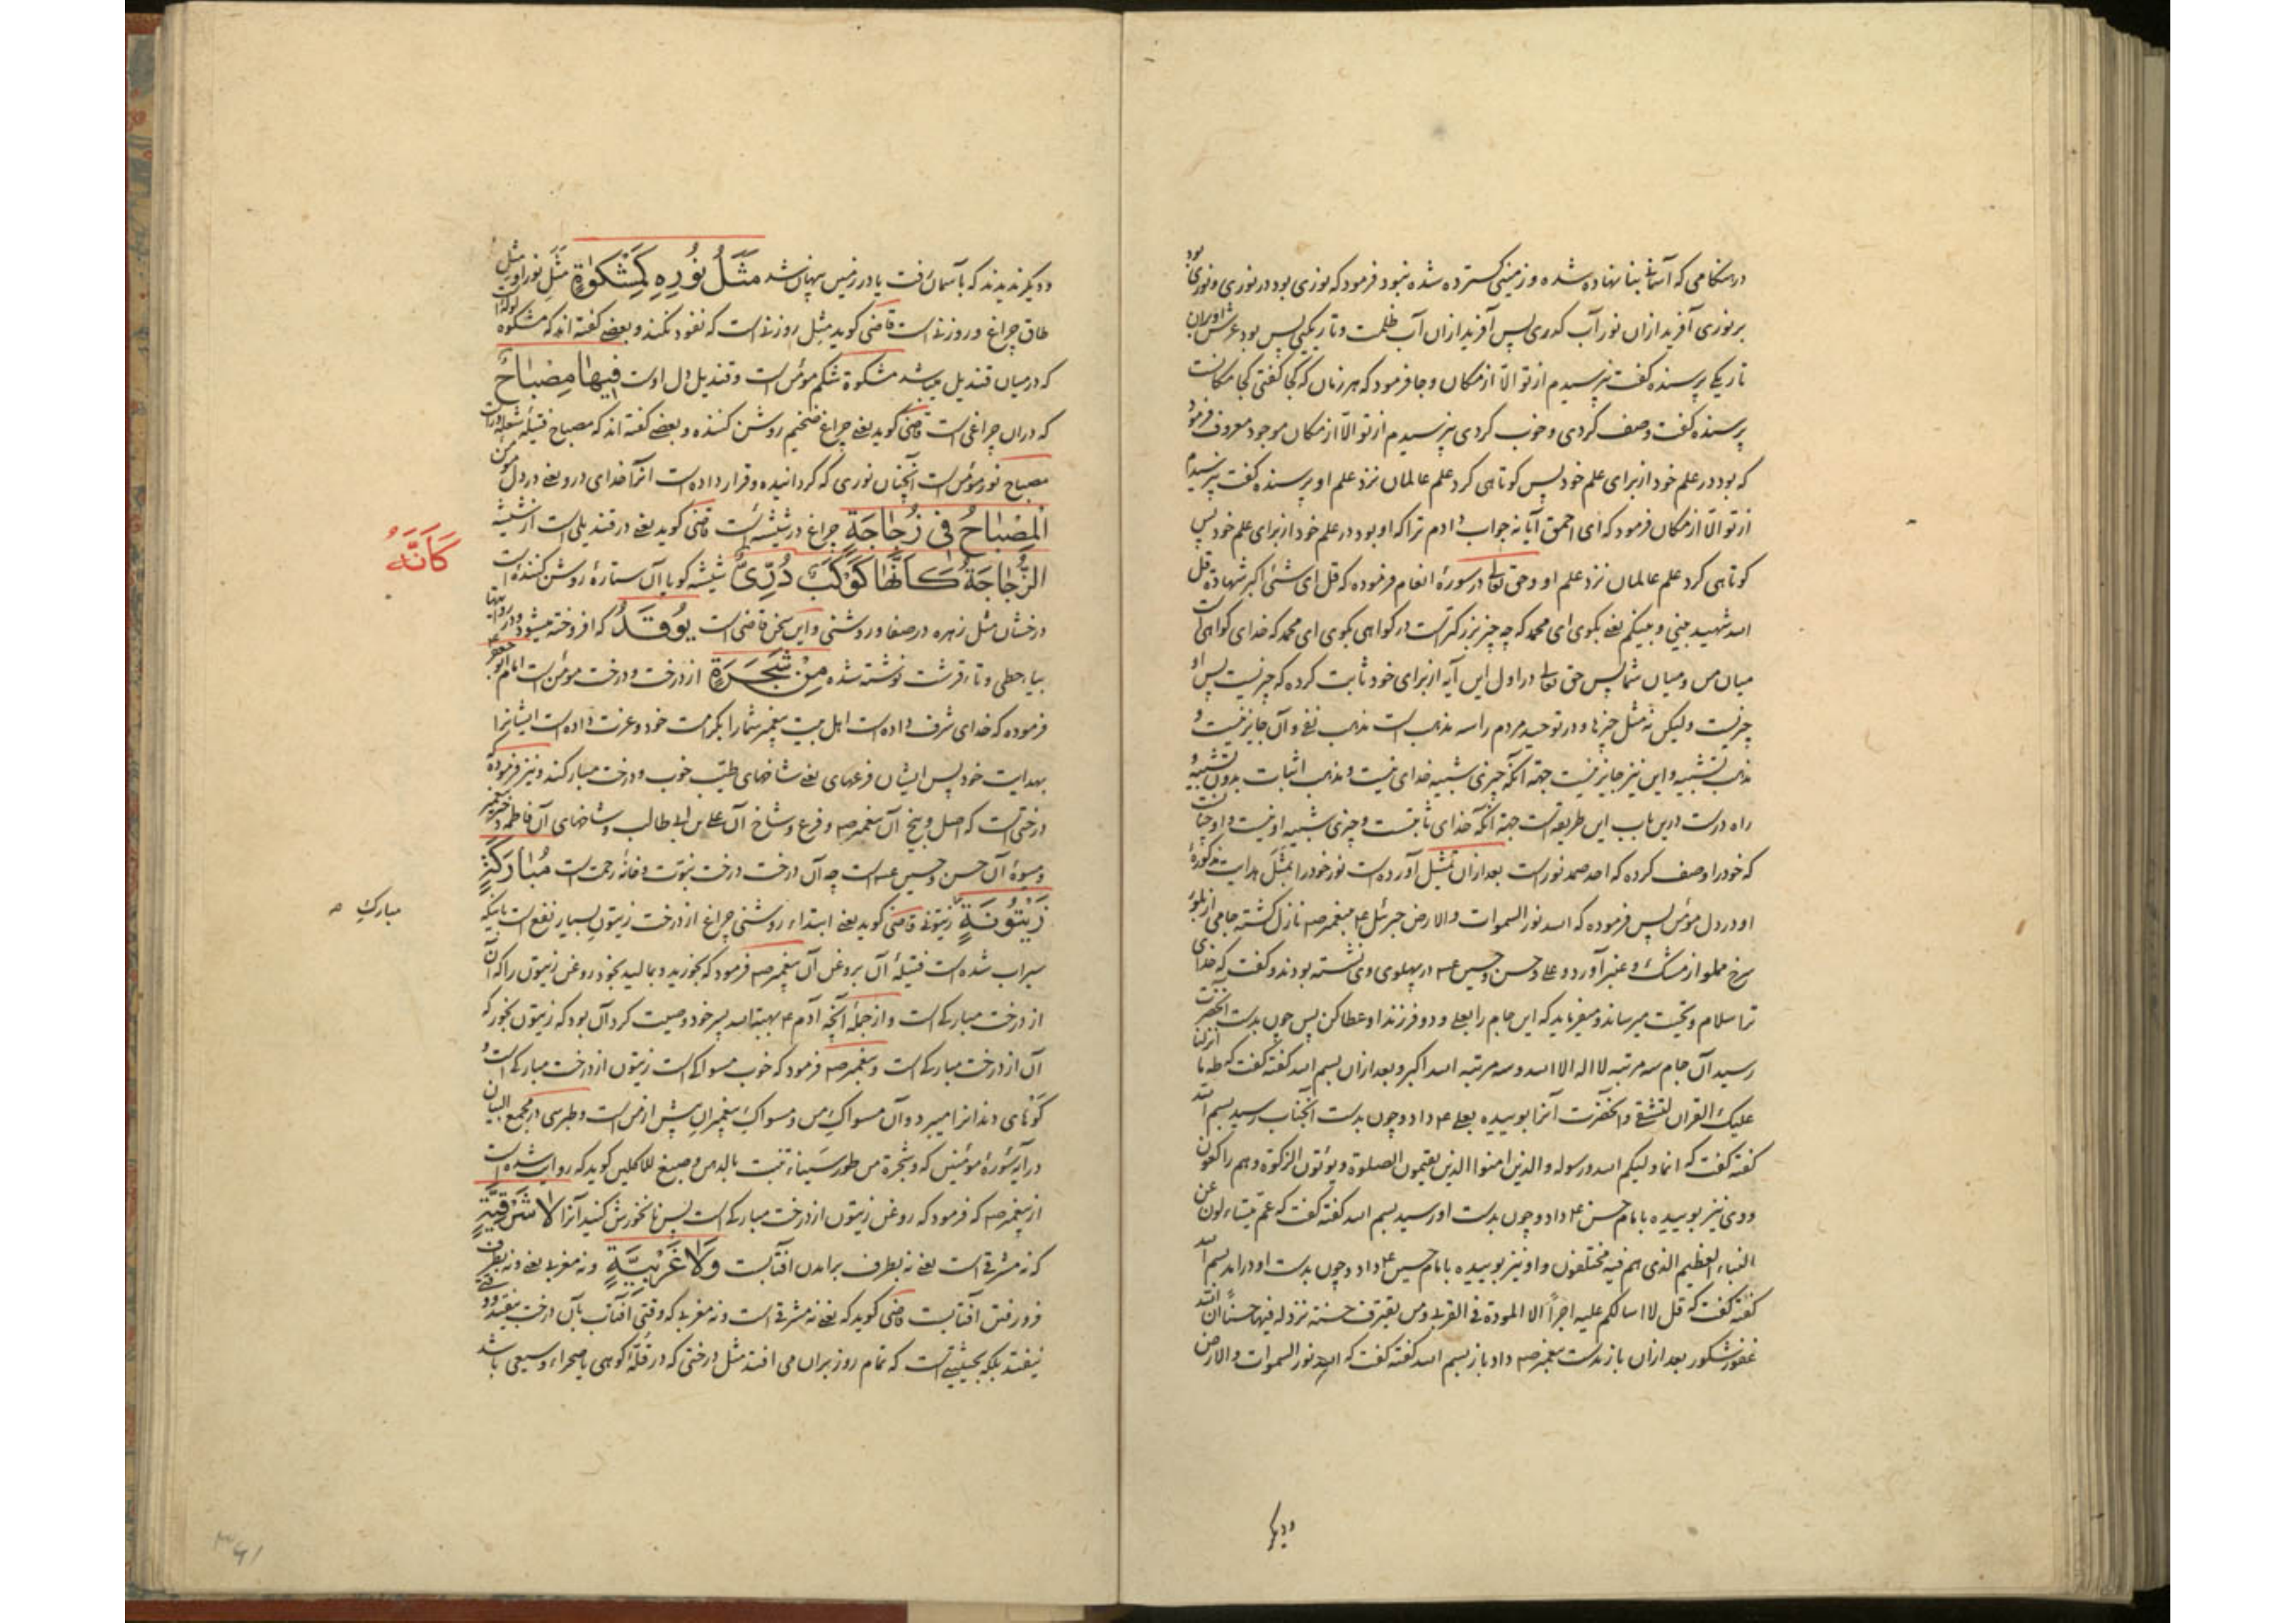 در هنگامی که آسمانی بنا نهاده شده و زمینی گسترده شده نبود فرمود که نوری بود در نوری و نوری بود
بر نوری آفرید از آن نور آب کدری پس آفرید از آن آب ظلمت و تاریکی پس بود عرش او بر آن
تاریکی پرسنده گفت نپرسیدم از تو الّا از مکان و جا فرمود که هر زمان که کجا گفتی کجا مکانست
پرسنده گفت وصف کردی و خوب کردی نپرسیدم از تو الّا از مکان موجود معروف فرمود
که بود در علم خود از برای علم خود پس کوتاهی کرد علم عالمان نزد علم او پرسنده گفت نپرسیدم
از تو الّا از مکان فرمود که ای احمق آیا نه جواب دادم ترا که او بود در علم خود از برای علم خود پس
کوتاهی کرد علم عالمان نزد علم او و حق تعالی در سورهٔ انعام فرموده که قل ای شئ اکبر شهادة قل
الله شهید بینی و بینکم یعنی بگوی ای محمد که چه چیز بزرگترست در گواهی بگوی ای محمد که خدای گواهست
میان من و میان شما پس حق تعالی در اول این آیه از برای خود ثابت کرده که چیزیست پس او
چیزیست ولیکن نه مثل چیزها و در توحید مردم را سه مذهب است مذهب نفی و آن جایز نیست و
مذهب تشبیه و این نیز جایز نیست جهة آنکه چیزی شبیه خدای نیست و مذهب اثبات بدون تشبیه و
راه درست درین باب این طریقه است جهة آنکه خدای ثابتست و چیزی شبیه او نیست و او چنانست
که خود را وصف کرده که احد صمد نورست بعد از آن تمثیل آورده است نور خود را بمثل هدایت مذکورهٔ
او در دل مؤمن پس فرموده که الله نور السموات والارض جبرئیل ع‍ بپیغمبر ص نازل گشته جامی از بلور
سرخ مملو از مشک و عنبر آورد و علی و حسن و حسین ع‍ در پهلوی وی نشسته بودند و گفت که خدای
ترا سلام و تحیّت میرساند و میفرماید که این جام را بعلی و دو فرزند او عطا کن پس چون بدست آنحضرت
رسید آن جام سه مرتبه لا اله الا الله و سه مرتبه الله اکبر و بعد از آن بسم الله گفته گفت که طه ما انزلنا
علیک القرآن لتشقی و آنحضرت آنرا بوییده بعلی ع‍ داد و چون بدست آنجناب رسید بسم الله
گفته گفت که انما ولیکم الله و رسوله والذین امنوا الذین یقیمون الصلوة و یؤتون الزکوة و هم راکعون
و وی نیز بوییده بامام حسن ع‍ داد و چون بدست او رسید بسم الله گفته گفت که عمّ یتساءلون عن
النباء العظیم الذی هم فیه مختلفون و او نیز بوییده بامام حسین ع‍ داد و چون بدست او درآمد بسم الله
گفته گفت که قل لا اسالکم علیه اجراً الا المودة فی القربی و من یقترف حسنة نزد له فیها حسناً ان الله
غفور شکور بعد از آن باز بدست پیغمبر ص داد باز بسم الله گفته گفت که الله نور السموات والارض
و دیگر
و دیگر ندیدند که بآسمان رفت یا در زمین پنهان شد مَثَلُ نُورِهِ کَمِشْکٰوةٍ مَثَلِ نور او مثل
طاق چراغ و روزنه است قاضی گوید مثل روزنه است که نفوذ نکند و بعضی گفته اند که مشکوة لوله است
که در میان قندیل میباشد مشکوة شکم مؤمن است و قندیل دل اوست فِیهٰا مِصْبٰاحٌ
که در آن چراغی است قاضی گوید یعنی چراغ ضخیم روشن کننده و بعضی گفته اند که مصباح فتیلهٔ شعله ورست
مصباح نور مؤمن است آنچنان نوری که گردانیده و قرار داده است آنرا خدای در وی یعنی در دل مؤمن
اَلْمِصْبٰاحُ فی زُجٰاجَةٍ چراغ در شیشه است قاضی گوید یعنی در قندیلی است از شیشه
الزُّجٰاجَةُ کَاَنَّهٰا کَوْکَبٌ دُرِّیٌّ شیشه گویا آن ستارهٔ روشن کننده است
کَاَنَّهُ
درخشان مثل زهره در صفا و روشنی و این سخن قاضی است یُوقَدُ که افروخته میشود و در روایتها
بیاء حطی و تاء قرشت نوشته شده مِنْ شَجَرَةٍ از درخت و درخت مؤمن است امام ابو جعفر ع‍
فرموده که خدای شرف داده است اهل بیت پیغمبر شما را بکرامت خود و عزت داده است ایشانرا
بهدایت خود پس ایشان فرعهای یعنی شاخهای طیّب خوب و درخت مبارکند و نیز فرموده که
درختی است که اصل و بیخ آن پیغمبر ص و فرع و شاخ آن علی بن ابی طالب و شاخهای آن فاطمه دختر پیغمبر
و میوهٔ آن حسن و حسین ع‍ است چه آن درخت درخت نبوّت و خانهٔ رحمت است مُبٰارَکَةٍ
مبارکِ ص
زَیْتُونَةٍ زیتونی قاضی گوید یعنی ابتداء روشنی چراغ از درخت زیتونِ بسیار نفع است باینکه
سیراب شده است فتیلهٔ آن بروغن آن پیغمبر ص فرمود که بخورید و بمالید بخود روغن زیتون را که آن
از درخت مبارکی است و از جملهٔ آنچه آدم ع‍ بهبة الله پسر خود وصیت کرد آن بود که زیتون بخور که
آن از درخت مبارکی است و پیغمبر ص فرمود که خوب مسواکی است زیتون از درخت مبارکی است و
گوناهی دندانرا میبرد و آن مسواکِ من و مسواکِ پیغمبرانِ پیش از من است و طبرسی در مجمع البیان
در آیهٔ سورهٔ مؤمنین که و شجرة من طور سَیناء تنبت بالدهن و صبغ للاکلین گوید که روایت شده است
از پیغمبر ص که فرمود که روغن زیتون از درخت مبارکی است پس نانخورش کنید آنرا لٰا شَرْقِیَّةٍ
که نه مشرقی است یعنی نه بطرف برآمدن آفتابست وَلٰا غَرْبِیَّةٍ و نه مغربی یعنی و نه بطرف
فرو رفتن آفتابست قاضی گوید که یعنی نه مشرقی است و نه مغربی که وقتی آفتاب بآن درخت بیفتد و وقتی
نیفتد بلکه بحیثیتی است که تمام روز بر آن می افتد مثل درختی که در قلّهٔ کوهی یا صحراء وسیعی باشد
۳۶۱